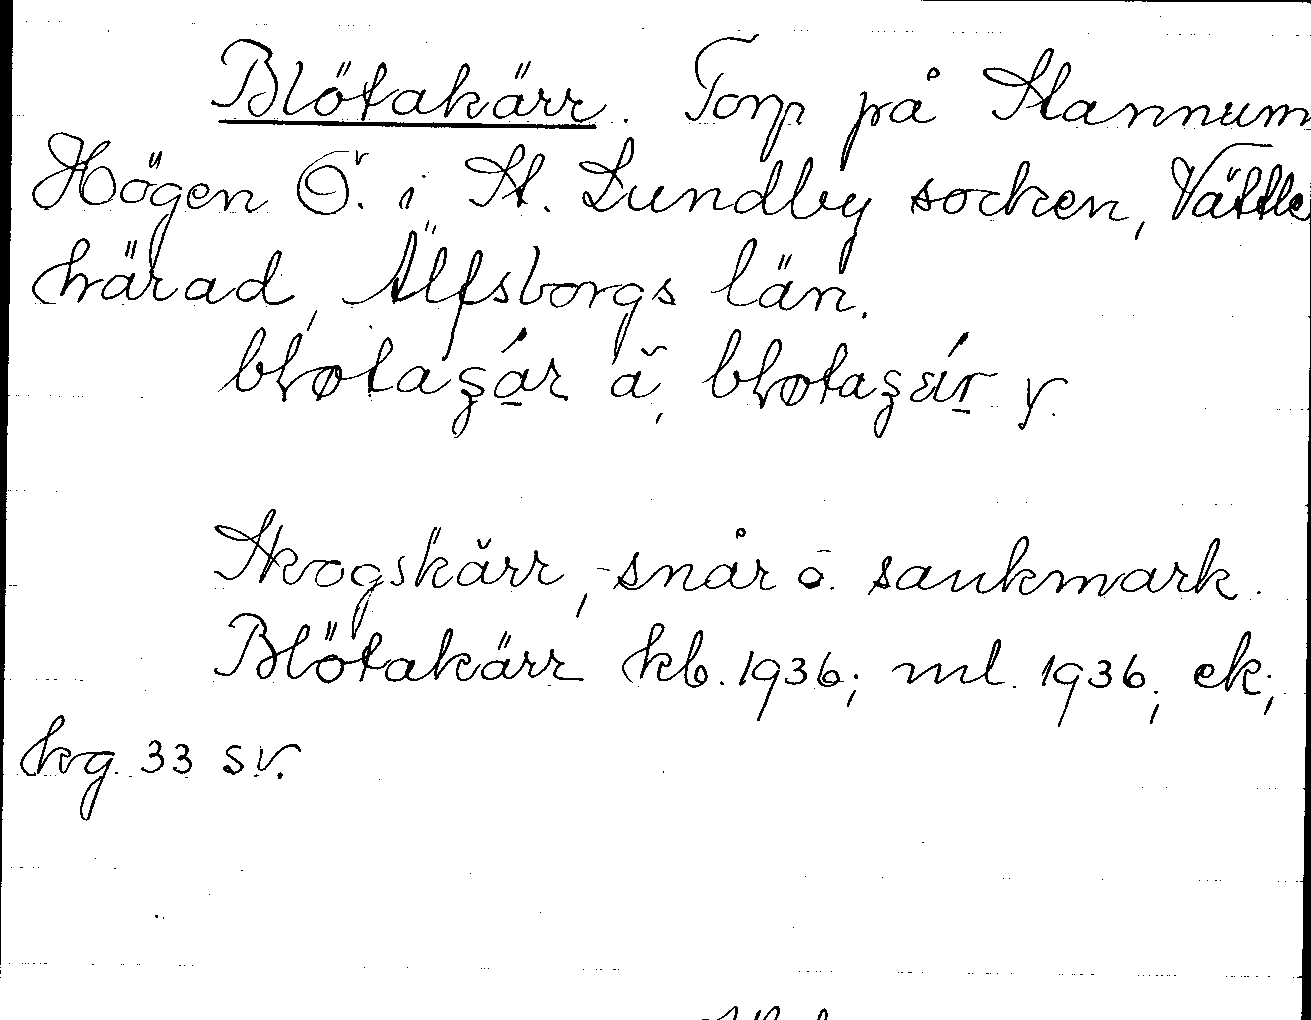 Blötakärr. Torp på Stannum
Högen Ö. i St. Lundby socken, Vättle
härad, Älfsborgs län.
bløtaʂár ä, bløtaʂǽr y.
Skogskärr, -snår o. sankmark.
Blötakärr kb. 1936; ml. 1936; ek;
krg. 33 sv.